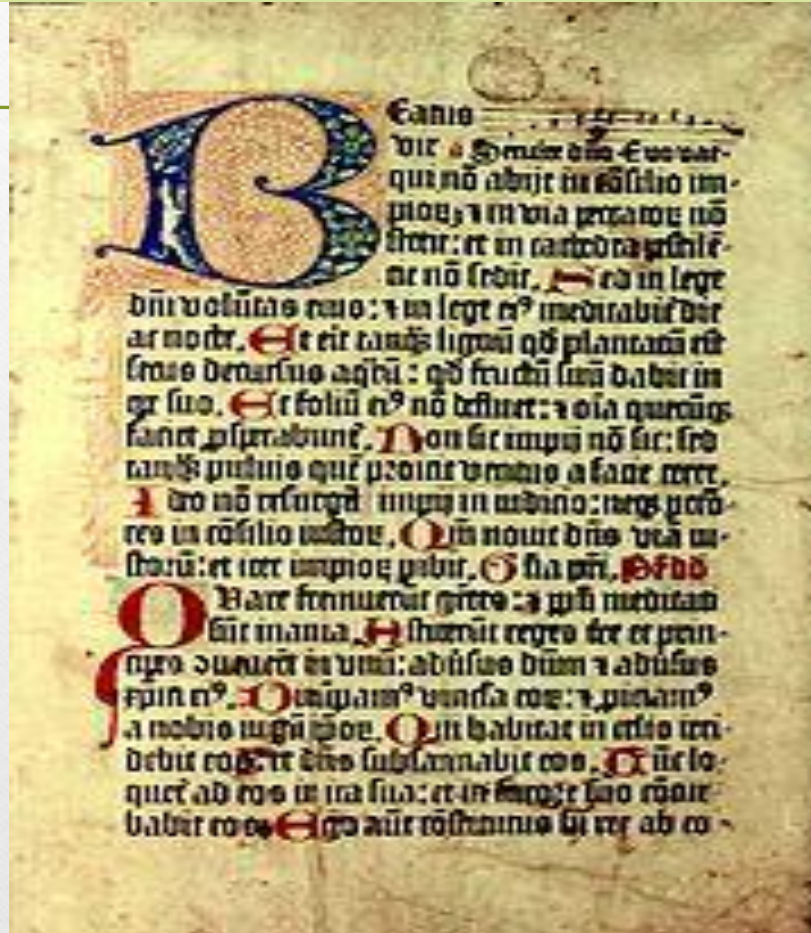 Beatus
vir Seruite dno Euouae-
qui nō abijt in cōsilio im-
pioꝝ ⁊ in via peccatoꝝ nō
stetit: et in cathedra pestilē-
tie nō sedit. Sed in lege
dñi volūtas eius: ⁊ in lege eiꝰ meditabit᷑ die
ac nocte. Et erit tanqꝫ lignū qd̄ plantatū est
secus decursus aqꝝ: qd̄ fructū suū dabit in
tpe suo. Et foliū eiꝰ nō defluet: ⁊ oīa quecūqꝫ
faciet ꝓsperabunt᷑. Non sic impij nō sic: sed
tanqꝫ puluis quē proicit ventus a facie terre.
Ideo nō resurgūt impij in iudicio: neqꝫ pctō-
res in cōsilio iustoꝝ. Qm̄ nouit dñs viā iu-
storū: et iter impioꝝ ꝑibit. Glia pri.
Quare fremuerūt gētes: ⁊ ppli meditati
sūt inania. Astiterūt reges tre et prin-
cipes ouenerūt in vnū: adūsus dñm ⁊ adūsus
xpm eiꝰ. Dirūpamꝰ vincla eoꝝ: ⁊ ꝓiciamꝰ
a nobis iugū ipoꝝ. Qui habitat in celis irri-
debit eos: et dñs subsannabit eos. Tūc lo-
quet᷑ ad eos in ira sua: et in furore suo cōtur-
babit eos. Ego aūt cōstitutus sū rex ab eo